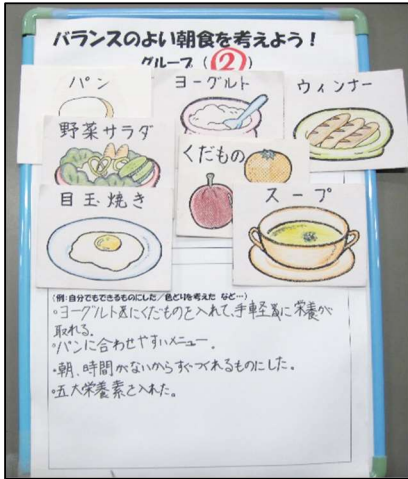 バランスのよい朝食を考えよう！
グループ（②）
パン
ヨーグルト
ウィンナー
野菜サラダ
くだもの
目玉焼き
スープ
(例：自分でもできるものにした／色どりを考えた など…)
・ヨーグルトにくだものを入れて、手軽に栄養が
取れる。
・パンに合わせやすいメニュー。
・朝、時間がないからすぐつくれるものにした。
・五大栄養素を入れた。